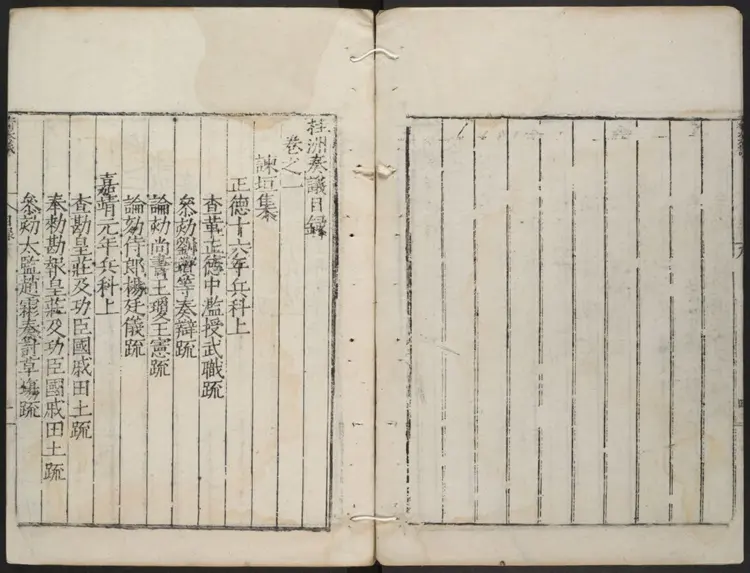 桂洲奏議目錄
卷之一
諫垣集
正德十六年兵科上
查革正德中濫授武職疏
叅劾劉瓚等奏辯疏
論劾尚書王瓊王憲疏
論劾侍郎楊廷儀疏
嘉靖元年兵科上
查勘皇莊及功臣國戚田土疏
奉勅勘報皇莊及功臣國戚田土疏
叅劾太監趙霦奏討草塲疏